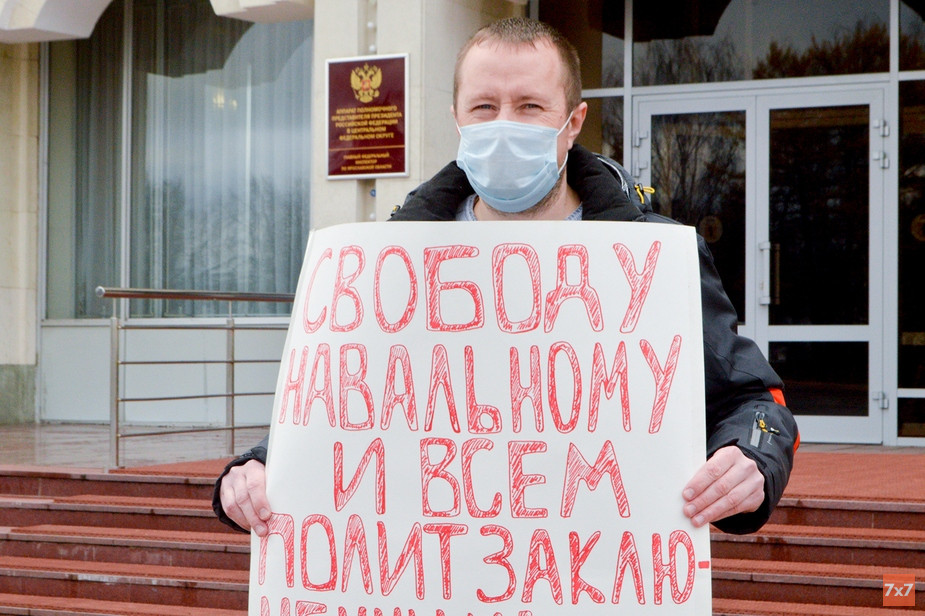 АППАРАТ ПОЛНОМОЧНОГО
ПРЕДСТАВИТЕЛЯ ПРЕЗИДЕНТА
РОССИЙСКОЙ ФЕДЕРАЦИИ
В ЦЕНТРАЛЬНОМ
ФЕДЕРАЛЬНОМ ОКРУГЕ
ГЛАВНЫЙ ФЕДЕРАЛЬНЫЙ
ИНСПЕКТОР
ПО ЯРОСЛАВСКОЙ ОБЛАСТИ
СВОБОДУ
НАВАЛЬНОМУ
И ВСЕМ
ПОЛИТЗАКЛЮ-
7x7